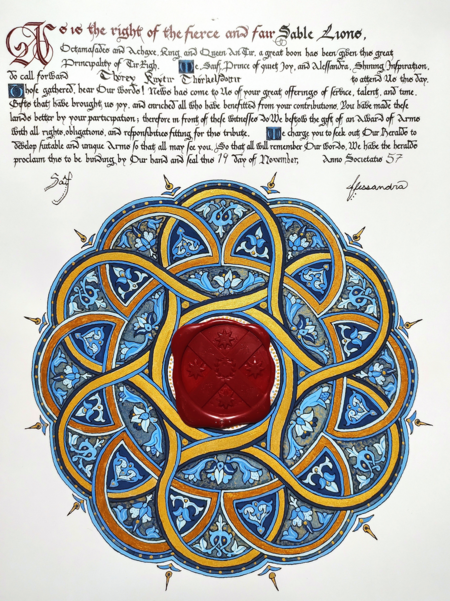 As is the right of the fierce and fair Sable Lions,
Octamasades and Achaxe, King and Queen An Tir, a great boon has been given this great
Principality of Tir Righ. We, Saif, Prince of quiet Joy, and Alessandra, Shining Inspiration,
do call forward Thorey Knytir Thorkelsdottir to attend Us this day.
Those gathered, hear Our Words! News has come to Us of your great offerings of service, talent, and time.
Gifts that have brought us joy, and enriched all who have benefitted from your contributions. You have made these
lands better by your participation; therefore in front of these witnesses do We bestow the gift of an Award of Arms
with all rights, obligations, and responsibilities fitting for this tribute. We charge you to seek out Our Heralds to
develop suitable and unique Arms so that all may see you. So that all will remember Our Words, We have the herald
proclaim this to be binding by Our hand and seal this 19 day of November, Anno Societatis 57
Saif Alessandra